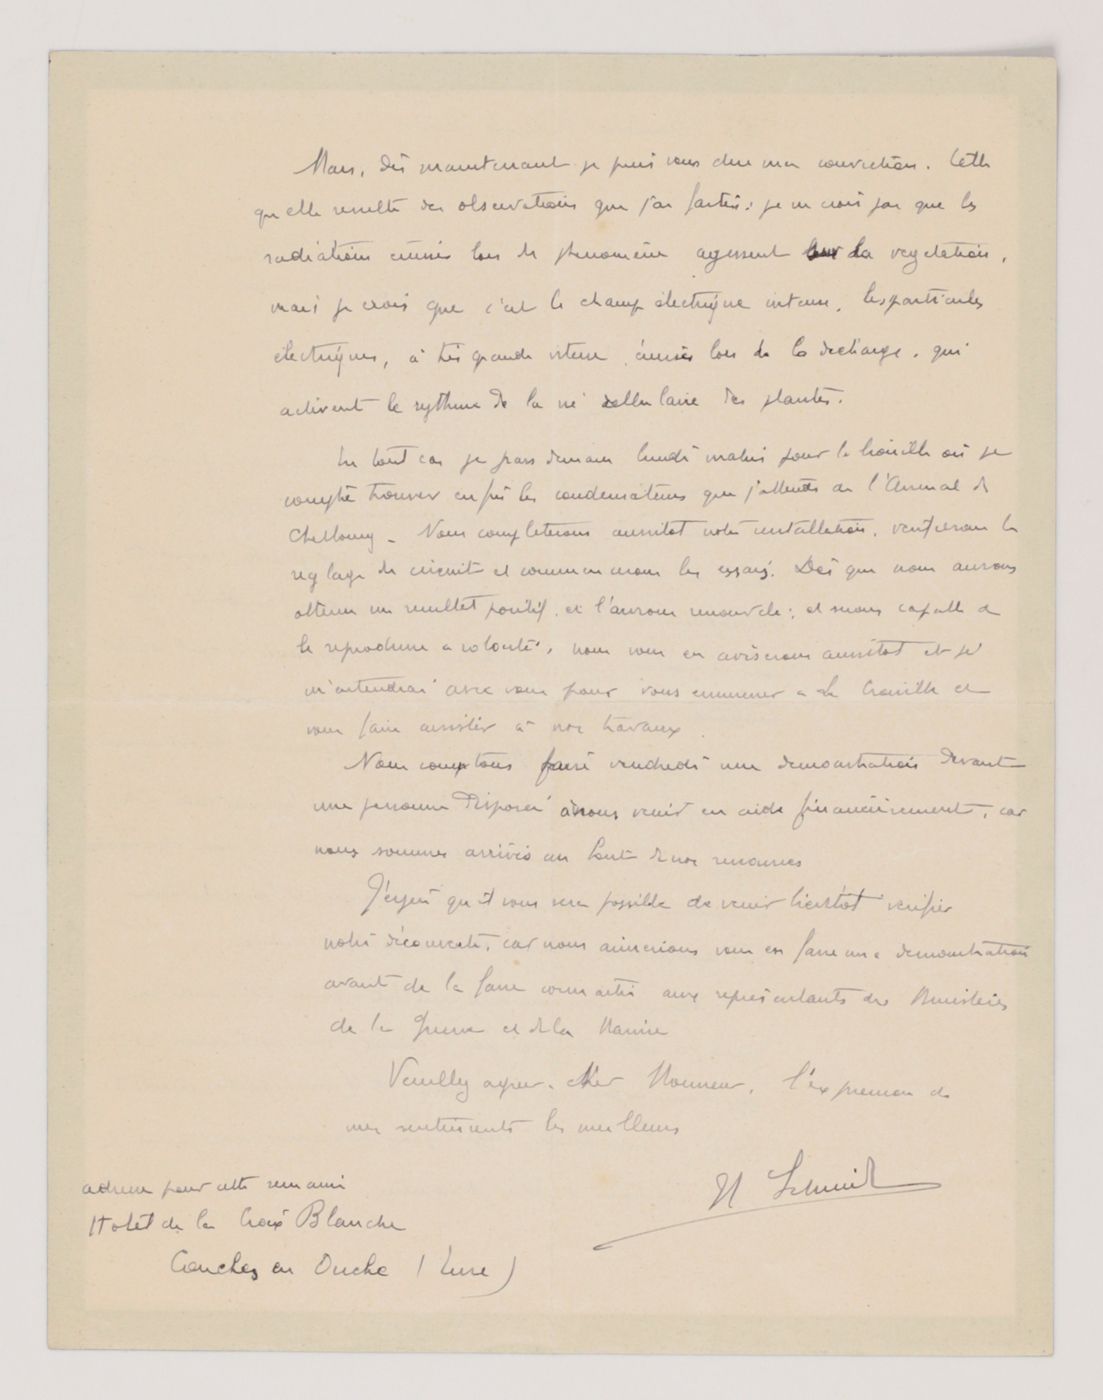 Mais, dès maintenant je puis vous dire ma conviction. Telle
qu'elle résulte des observations que j'ai faites : je ne crois pas que les
radiations émises lors du phénomène agissent sur la végétation,
mais je crois que c'est le champ électrique intense, les particules
électriques, à très grande vitesse émises lors de la décharge, qui
activent le rythme de la vie cellulaire des plantes.
En tout cas je pars demain lundi matin pour la où je
compte trouver enfin les condensateurs que j'attends de l'Arsenal de
Cherbourg - Nous completerons aussitot notre installation, verifierons le
reglage du circuit et commencerons les essais. Dès que nous aurons
obtenu un resultat positif, et l'aurons renouvelé ; et serons capable de
le reproduire a volonté, nous vous en aviserons aussitot et je
m'entendrai avec vous pour vous emmener a la et
vous faire assister à nos travaux.
Nous comptons faire vendredi une demonstration devant
une personne disposée à nous venir en aide financièrement, car
nous sommes arrivés au bout de nos ressources
J'espère qu'il vous sera possible de venir bientôt vérifier
notre découverte, car nous aimerions vous en faire une demonstration
avant de la faire connaitre aux représentants des Ministères
de la Guerre et de la Marine
Veuillez agréer, cher Monsieur, l'expression de
mes sentiments les meilleurs
H Schmidt
adresse pour cette semaine
Hotel de la Croix Blanche
Conches en Ouche (Eure)